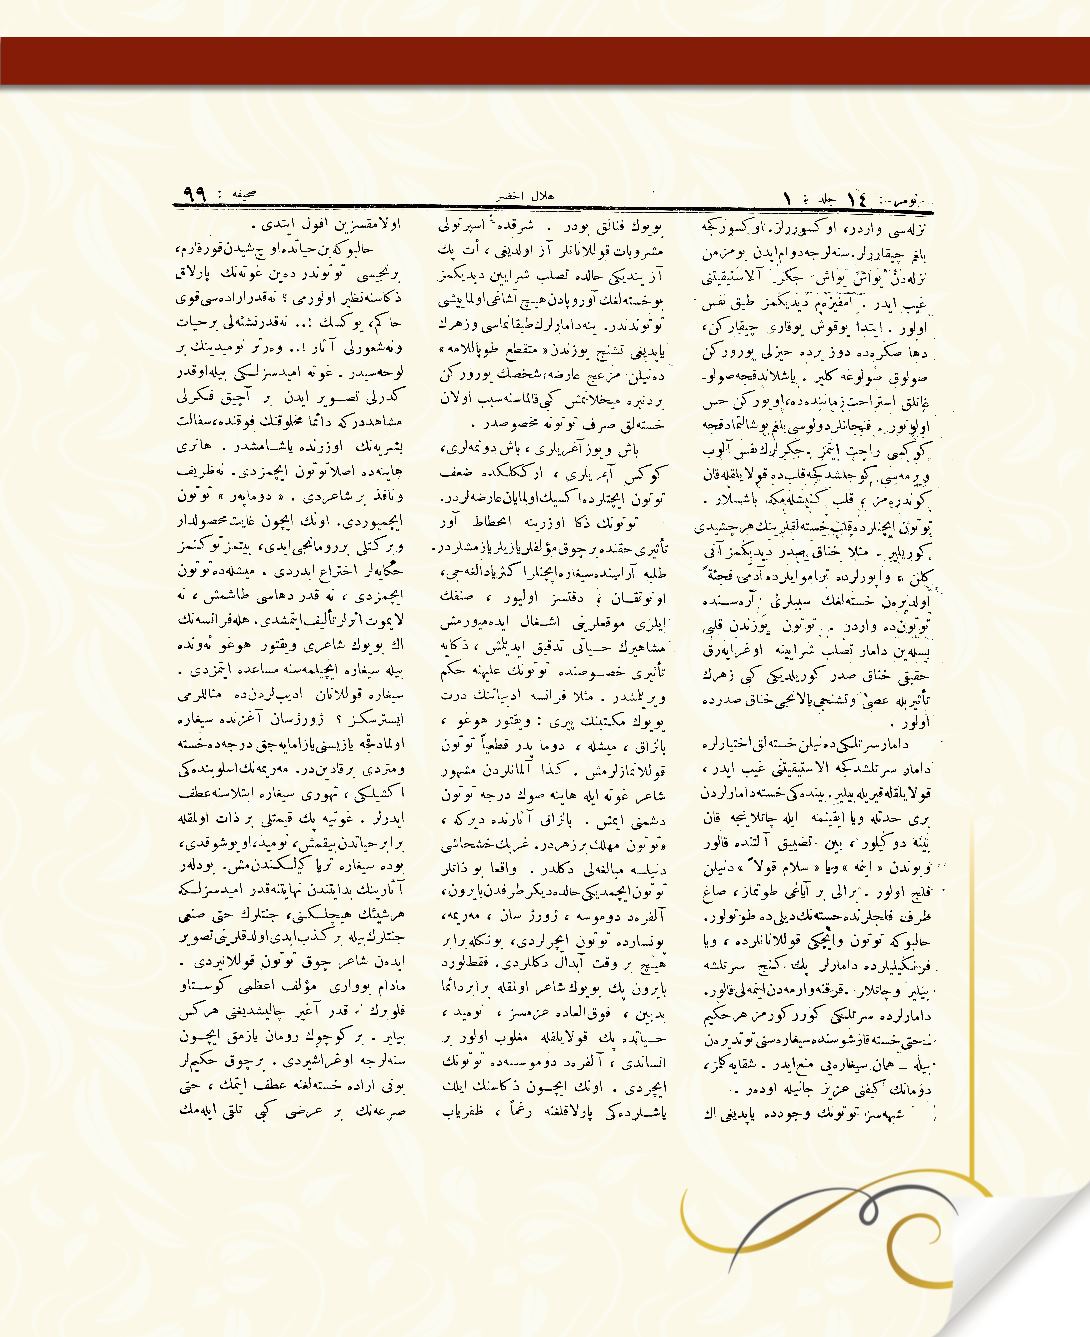 نومرو : ١٤ جلد : ١
هلال اخضر
صحيفه : ٩٩
نزله‌سى واردر، اوكسوررلر. اوكسوردكجه
بلغم چيقاررلر. سنه‌لرجه دوام ايدن بو مزمن
نزله‌دن يواش يواش جكر آلاستيقيتنى
غيب ايدر . آمفيزه‌م ديديكمز طيق نفس
اولور . ابتدا يوقوش يوقارى چيقاركن،
دها صكره‌ده دوز يرده حيزلى يوروركن
صولوق صولوغه كلير . ياشلاندقجه صولو-
غانلق استراحت زماننده ده، اويوركن حس
اولونور . فنجانلر دولوسى بلغم بوشالتمادقجه
كوكسى راحت ايتمز. جكرلرك نفس آلوب
ويرمه‌سى كوجلشدكجه قلب ده قولايلقله قان
كوندره‌مز ، قلب كنيشله‌مكه باشلار .
توتون ايچنلرده قلب خسته‌لقلرينك هر چشيدى
كوريلير . مثلا خناق صدر ديديكمز آنى
كلن ، واپورلرده تراموايلرده آدمى فجئة
اولديرن خسته‌لغك سببلرى آره‌سنده
توتون ده واردر . توتون يوزندن قلبى
بسله‌ين دامار تصلب شرايينه اوغرايه‌رق
حقيقى خناق صدر كوريلديكى كبى زهرك
تأثيريله عصبى وتشنجى يالانجى خناق صدرده
اولور .
دامار سرتلكى ده‌نيلن خسته‌لق اختيارلره
دامار سرتلشدكجه الاستيقيتنى غيب ايدر ،
قولايلقله قيريله‌بيلير. بينده‌كى خسته دامارلردن
برى حدتله ويا ايقينمه ايله چاتلاينجه قان
بينه دوكيلور ، بين تضييق آلتنده قالور
وبوندن « اينمه » ويا « سلام قولا » دنيلن
فلج اولور . برالى بر آياغى طوتماز ، صاغ
طرف فلجلرنده خسته‌نك ديلى ده طوتولور.
حالبوكه توتون وايچكى قوللانانلرده ، ويا
فرنكيليلرده دامارلر پك كنج سرتلشه
بيلير وچاتلار . قرقنه وارمه‌دن اينمه‌لى قالور.
دامارلرده سرتلكى كورر كورمز هر حكيم
حتى خسته قارشوسنده سيغاره‌سنى توتديرن
بيله - همان سيغاره‌يى منع ايدر . شقايه كلمز،
دومانك كيفى عزيز جانيله اوده‌ر .
شبهه‌سز توتونك وجودده ياپديغى اك
بويوك فنالق بودر . شرقده اسپرتولى
مشروبات قوللانانلر آز اولديغى ، أت پك
آز يندیكى حالده تصلب شرايين ديديكمز
بو خسته‌لغك آوروپادن هيچ آشاغى اولمايیشى
توتوندندر. ينه دامارلرك طيقانماسى وزهرك
ياپديغى تشنج يوزندن « متقطع طوپاللامه »
ده‌نيلن مزعج عارضه، شخصك يوروركن
بردنبره ميخلانمش كبى قالماسنه سبب اولان
خسته‌لق صرف توتونه مخصوصدر .
باش ويوز آغريلرى ، باش دونمه‌لرى،
كوكس آغريلرى ، ارككلكده ضعف
توتون ايچنلرده اكسيك اولمايان عارضه‌لردر.
توتونك ذكا اوزرينه انحطاط آور
تأثيرى حقنده بر چوق مؤلفلر يازيلر يازمشلردر.
طلبه آراسنده سيغاره ايچنلر اكثريا دالغه‌جى،
اونوتقان ، دقتسز اوليور ، صنفك
ايلرى موقعلرينى اشغال ايده‌ميورمش
مشاهيرك حياتى تدقيق ايديلمش ، ذكايه
تأثيرى خصوصنده توتونك عليهنه حكم
ويرلمشدر . مثلا فرانسه ادبياتنك درت
بويوك مكتبنك پيرى : ويقتور هوغو ،
بالزاق ، ميشله ، دوما پدر قطعياً توتون
قوللانمازلرمش . كذا آلمانلردن مشهور
شاعر غوته ايله هاينه صوك درجه توتون
دشمنى ايمش . بالزاق آثارنده ديركه ،
« توتون مهلك بر زهردر. غريبك خشخاشى
دنيلسه مبالغه‌لى دكلدر . واقعا بو ذاتلر
توتون ايچمديكى حالده ديكر طرفدن بايرون،
آلفره‌د دوموسه ، ژورژ سان ، مه‌ريمه،
پونسارده توتون ايچرلردى، بونكله برابر
هيچ بر وقت آبدال دكللردى. فقط لورد
بايرون پك بويوك شاعر اولمقله برابر دائما
بدبين ، فوق العاده عزمسز ، نوميد ،
حياتده پك قولايلقله مغلوب اولور بر
انساندى ، آلفره‌د دوموسسه‌ده توتونك
ايچردى . اونك ايچون ذكاسنك ايلك
ياشلرده‌كى پارلاقلغنه رغماً ، ظفرياب
اولامقسزين افول ايتدى .
حالبوكه بن حياتده او چ شيدن قورقارم،
برنجيسى توتوندر ده‌ين غوته‌نك پارلاق
ذكاسنه نظير اولورمى ؟ نه‌قدر اراده‌سى قوى
حاكم، يوكسك !.. نه‌قدر نشئه‌لى بر حيات
ونه شعورلى آثار !.. وه‌رتر نوميدينك بر
لوحه‌سيدر . غوته اميدسزلكى بيله او قدر
كدرلى تصوير ايدن بر آچيق فكرلى
مشاهددركه دائما مخلوقنك فوقنده، سفالت
بشريه‌نك اوزرنده ياشامشدر . هانرى
هاينه‌ده اصلا توتون ايچمزدى. نه ظريف
ونافذ بر شاعردى . « دوماپه‌ر » توتون
ايچميوردى. اونك ايچون غايت محصولدار
وبركتلى بر رومانجى ايدى، بيتمز توكنمز
حكايه‌لر اختراع ايدردى . ميشله‌ده توتون
ايچمزدى ، نه قدر دهاسى طاشمش ، نه
لايموت اثرلر تأليف ايتمشدى. هله فرانسه‌نك
اك بويوك شاعرى ويقتور هوغو نه‌ونده
بيله سيغاره ايچيلمه‌سنه مساعده ايتمزدى .
سيغاره قوللانان اديبلردن‌ده مثاللرمى
ايسترسكز ؟ ژورژ سان آغزنده سيغاره
اولمادقجه يازيسنى يازامايه‌جق درجه‌ده خسته
ومتردى بر قادين‌در. مه‌ريمه‌نك اسلوبنده‌كى
اكشيلكى ، تهورى سيغاره ابتلاسنه عطف
ايدرلر . غوتيه پك قيمتلى بر ذات اولمقله
برابر حياتدن بيقمش، نوميد، اويوشوقدى،
بوده سيغاره ترياكيلكندن‌مش. بودله‌ر
آثارينك بدايتندن نهايتنه‌قدر اميدسزلكه
هر شيئك هيچلكنى، جنتلرك حتى صنعى
جنتلرك بيله بر كذب ابدى اولدقلرينى تصوير
ايده‌ن شاعر چوق توتون قوللانيردى .
مادام بووارى مؤلف اعظمى كوستاو
فلوبرك نه قدر آغير چاليشديغنى هركس
بيلير . بر كوچوك رومان يازمق ايچون
سنه‌لرجه اوغراشيردى . بر چوق حكيم‌لر
بونى اراده خسته‌لغنه عطف ايتمك ، حتى
صرعه‌نك بر عرضى كبى تلقى ايله‌مك